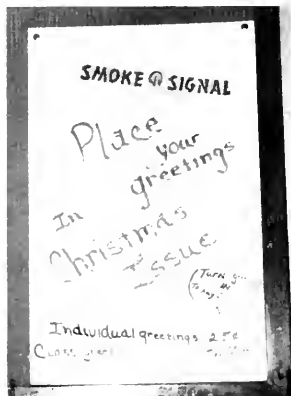 SMOKE SIGNAL
Place
your
greetings
In
Christmas
Issue
(Turn
Individual greetings 25¢
Class